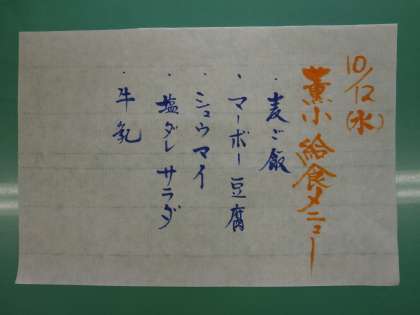 10/12(水)
薫小 給食メニュー
・麦ご飯
・マーボー豆腐
・シュウマイ
・塩ダレサラダ
・牛乳